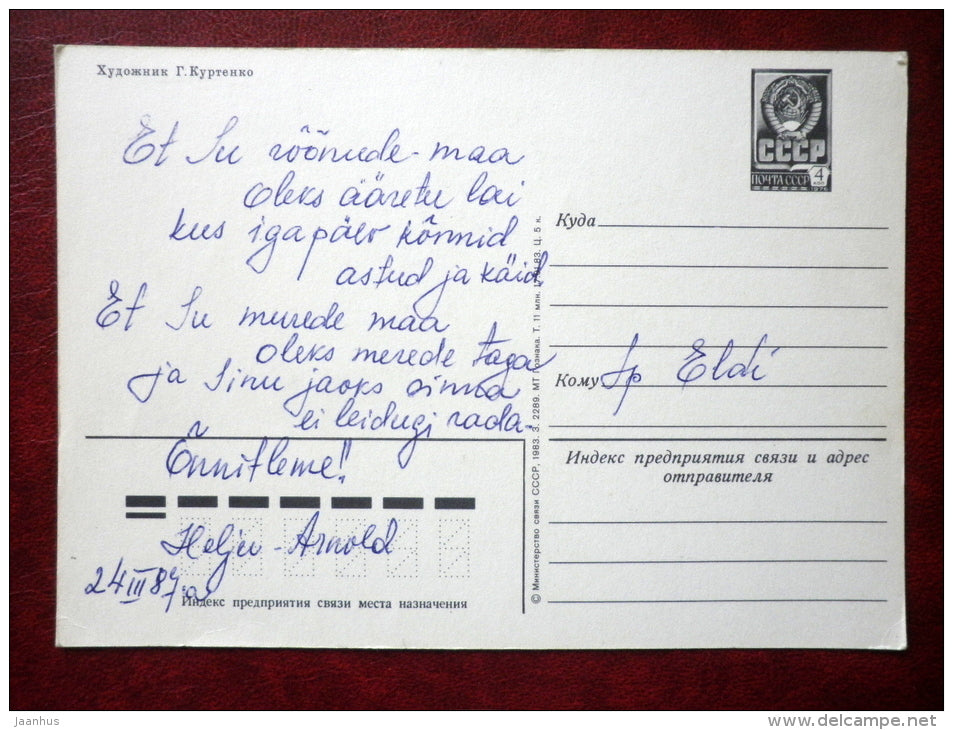 Художник Г. Куртенко
Et Su rõõmude-maa
oleks ääretu lai
kus igapäev kõnnid
astud ja käid
Et Su murede maa
oleks merede taga
ja Sinu jaoks sinna
ei leidugi rada-
Õnnitleme!
Helju-Arnold
24 III 87.a
Индекс предприятия связи места назначения
© Министерство связи СССР, 1983. З. 2289. МТ Гознака. Т. 11 млн. Ц. 5 к.
СССР
ПОЧТА СССР 4 КОП
1976
Куда
Кому Sp Eldi
Индекс предприятия связи и адрес
отправителя
Jaanhus
delcampe.net